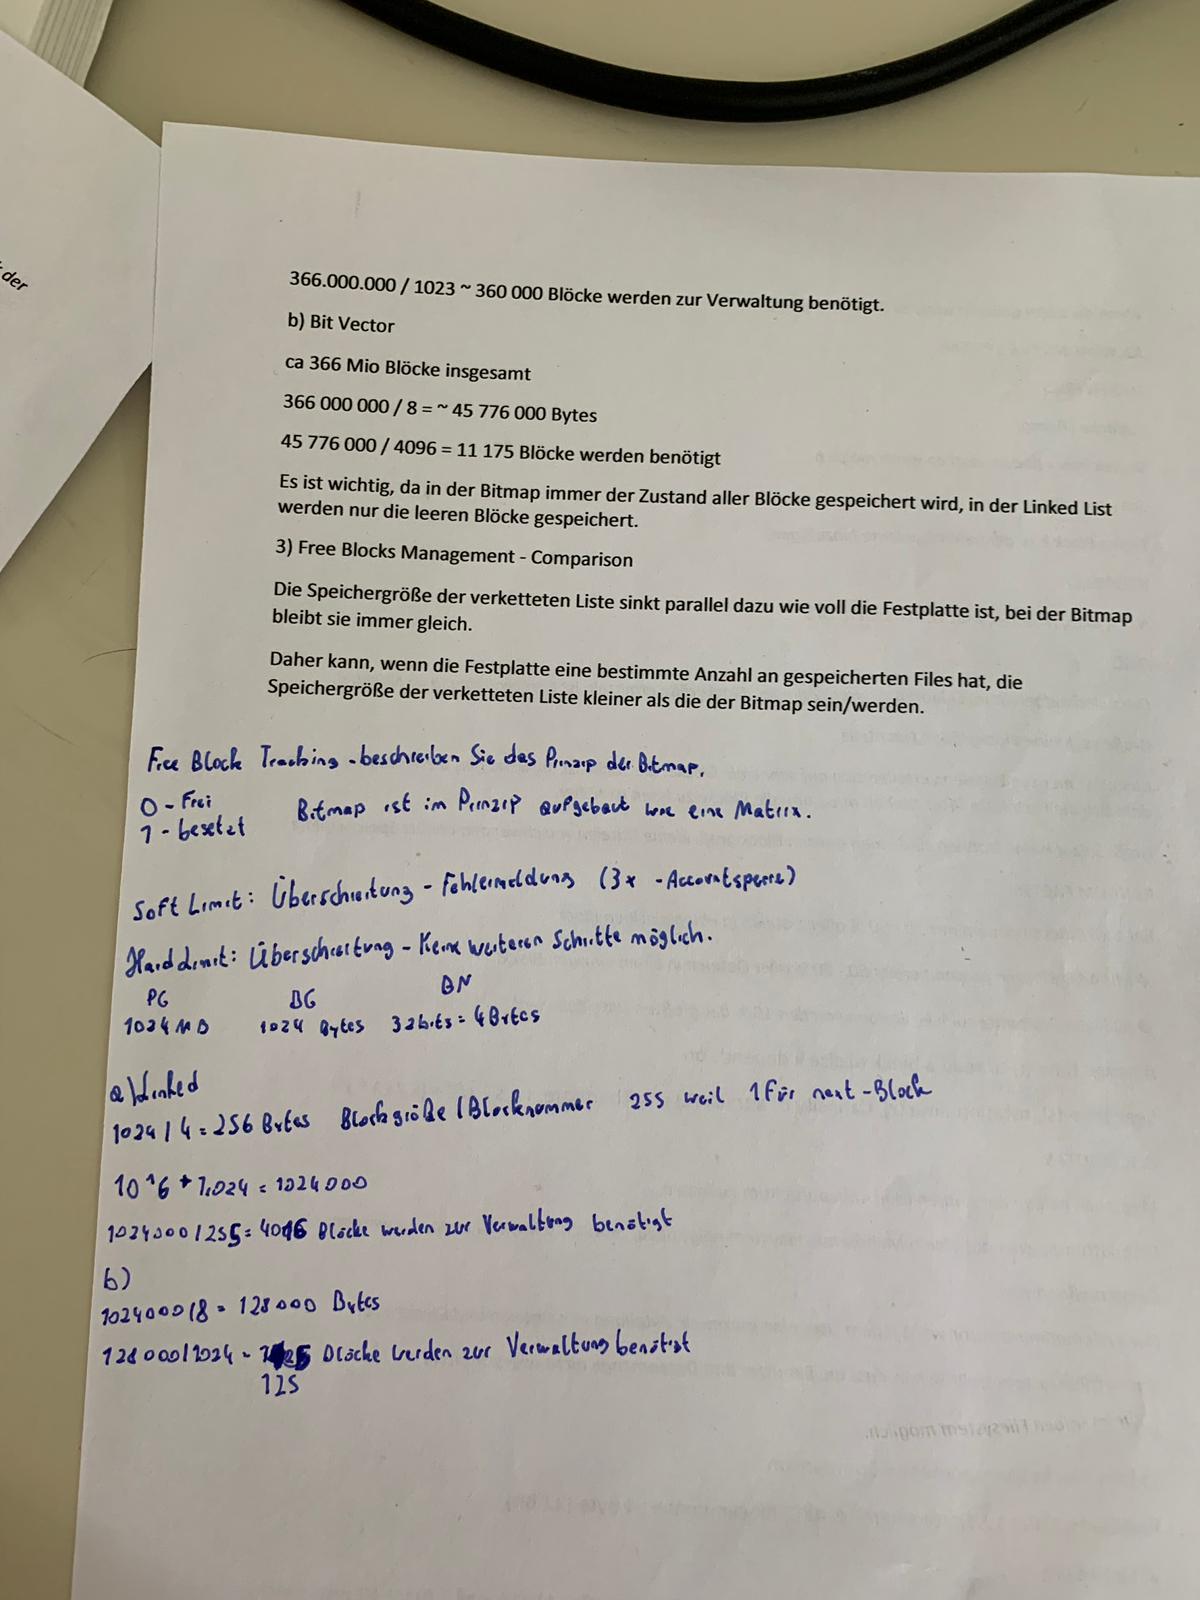 der
366.000.000 / 1023 ~ 360 000 Blöcke werden zur Verwaltung benötigt.
b) Bit Vector
ca 366 Mio Blöcke insgesamt
366 000 000 / 8 = ~ 45 776 000 Bytes
45 776 000 / 4096 = 11 175 Blöcke werden benötigt
Es ist wichtig, da in der Bitmap immer der Zustand aller Blöcke gespeichert wird, in der Linked List
werden nur die leeren Blöcke gespeichert.
3) Free Blocks Management - Comparison
Die Speichergröße der verketteten Liste sinkt parallel dazu wie voll die Festplatte ist, bei der Bitmap
bleibt sie immer gleich.
Daher kann, wenn die Festplatte eine bestimmte Anzahl an gespeicherten Files hat, die
Speichergröße der verketteten Liste kleiner als die der Bitmap sein/werden.
Free Block Tracking - beschreiben Sie das Prinzip der Bitmap.
0 - Frei Bitmap ist im Prinzip aufgebaut wie eine Matrix.
1 - besetzt
Soft Limit: Überschreitung - Fehlermeldung (3x - Accountsperre)
Hard Limit: Überschreitung - Keine weiteren Schritte möglich.
PG BG BN
1024 MB 1024 Bytes 32bits = 4Bytes
a) Linked
1024 / 4 = 256 Bytes Blockgröße / Blocknummer 255 weil 1 für next-Block
10^6 * 1,024 = 1024000
1024000 / 255 = 4016 Blöcke werden zur Verwaltung benötigt
b)
1024000 / 8 = 128000 Bytes
128000 / 1024 = Blöcke werden zur Verwaltung benötigt
125